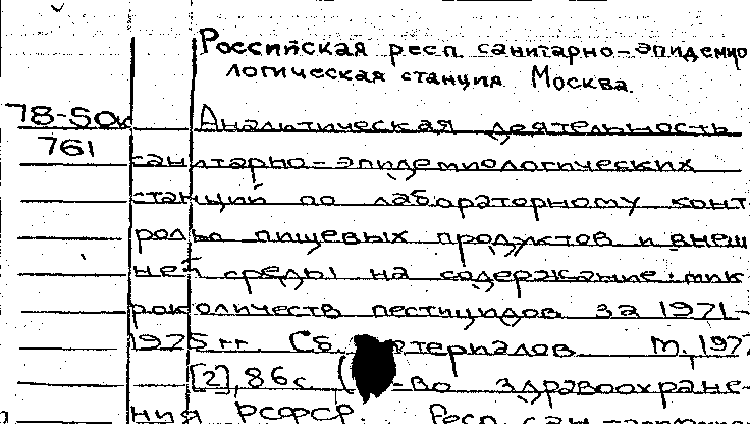 Российская респ. санитарно-эпидемио
логическая станция Москва.
78-50к Аналитическая деятельность
761 санитарно-эпидемиологических
станций по лабораторному конт-
ролю пищевых продуктов и внеш
ней среды на содержание мик
роколичеств пестицидов за 1971-
1975 гг. Сб. материалов М., 197
[2], 86 с. -во здравоохране-
ния РСФСР. Респ.